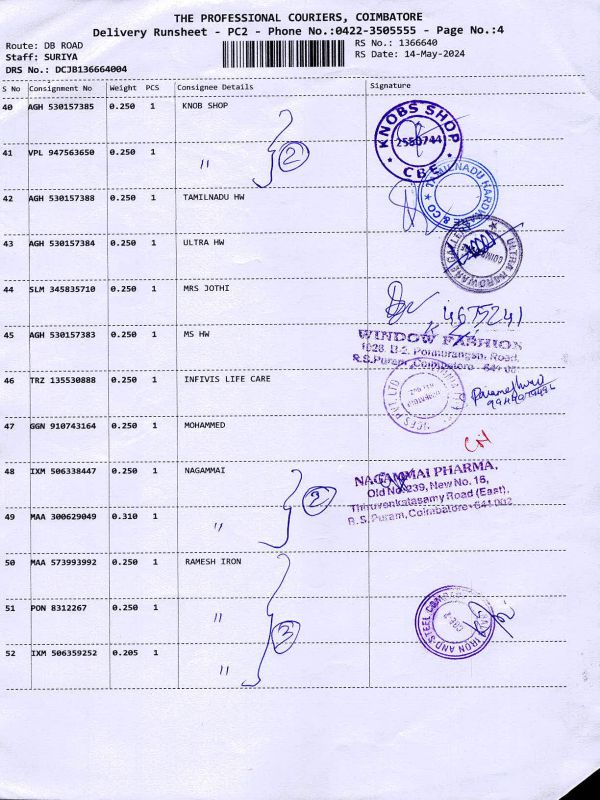 THE PROFESSIONAL COURIERS, COIMBATORE
Delivery Runsheet - PC2 - Phone No.:0422-3505555 - Page No.:4
Route: DB ROAD
RS No.: 1366640
Staff: SURIYA
RS Date: 14-May-2024
DRS No.: DCJB136664004
S No Consignment No Weight PCS Consignee Details Signature
40 AGH 530157385 0.250 1 KNOB SHOP
KNOBS SHOP
2550744
CBE
41 VPL 947563650 0.250 1 〃 2
42 AGH 530157388 0.250 1 TAMILNADU HW
TAMILNADU HARDWARE & CO
43 AGH 530157384 0.250 1 ULTRA HW
ULTRA HARDWARE GALLERY
44 SLM 345835710 0.250 1 MRS JOTHI
45 AGH 530157383 0.250 1 MS HW
WINDOW FASHION
R.S.Puram, Coimbatore - 641 002
46 TRZ 135530888 0.250 1 INFIVIS LIFE CARE
47 GGN 910743164 0.250 1 MOHAMMED
48 IXM 506338447 0.250 1 NAGAMMAI
NAGAMMAI PHARMA,
Old No. 239, New No. 18,
Thiruvenkatasamy Road (East),
R.S.Puram, Coimbatore-641 002
49 MAA 300629049 0.310 1 〃 2
50 MAA 573993992 0.250 1 RAMESH IRON
51 PON 8312267 0.250 1 〃 3
IRON AND STEEL COMPANY
52 IXM 506359252 0.205 1 〃